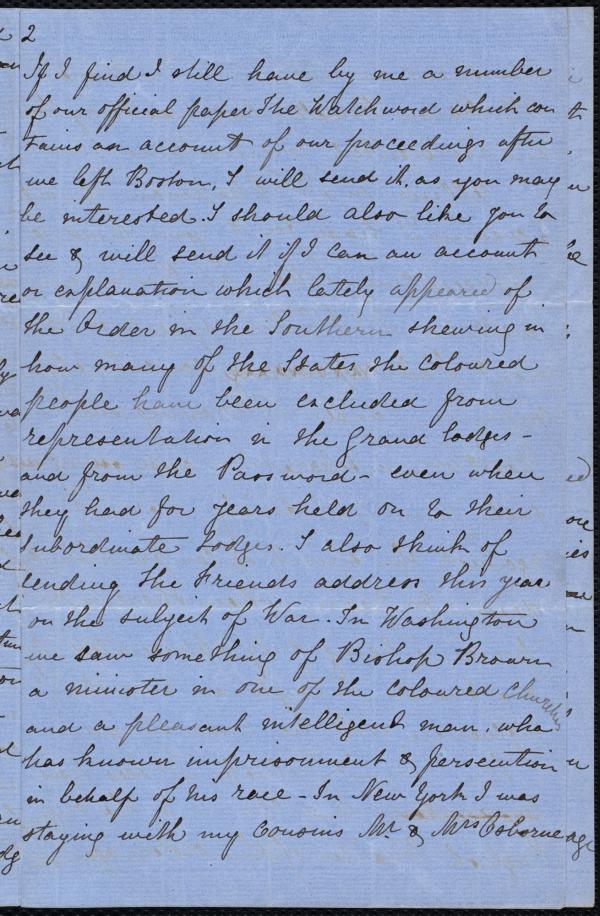 2
If I find I still have by me a number
of our official paper The Watchword which con
tains an account of our proceedings after
we left Boston, I will send it, as you may
be interested. I should also like you to
see & will send it if I can an account
or explanation which lately appeared of
the Order in the Southern shewing in
how many of the States the coloured
people have been excluded from
representation in the Grand Lodges -
and from the Password - even when
they had for years held on to their
subordinate Lodges. I also think of
sending the Friends address this year
on the subject of War. In Washington
we saw something of Bishop Brown
a minister in one of the coloured Churches
and a pleasant intelligent man, who
has known imprisonment & persecution
in behalf of his race - In New York I was
staying with my Cousins Mr. & Mrs Osborne